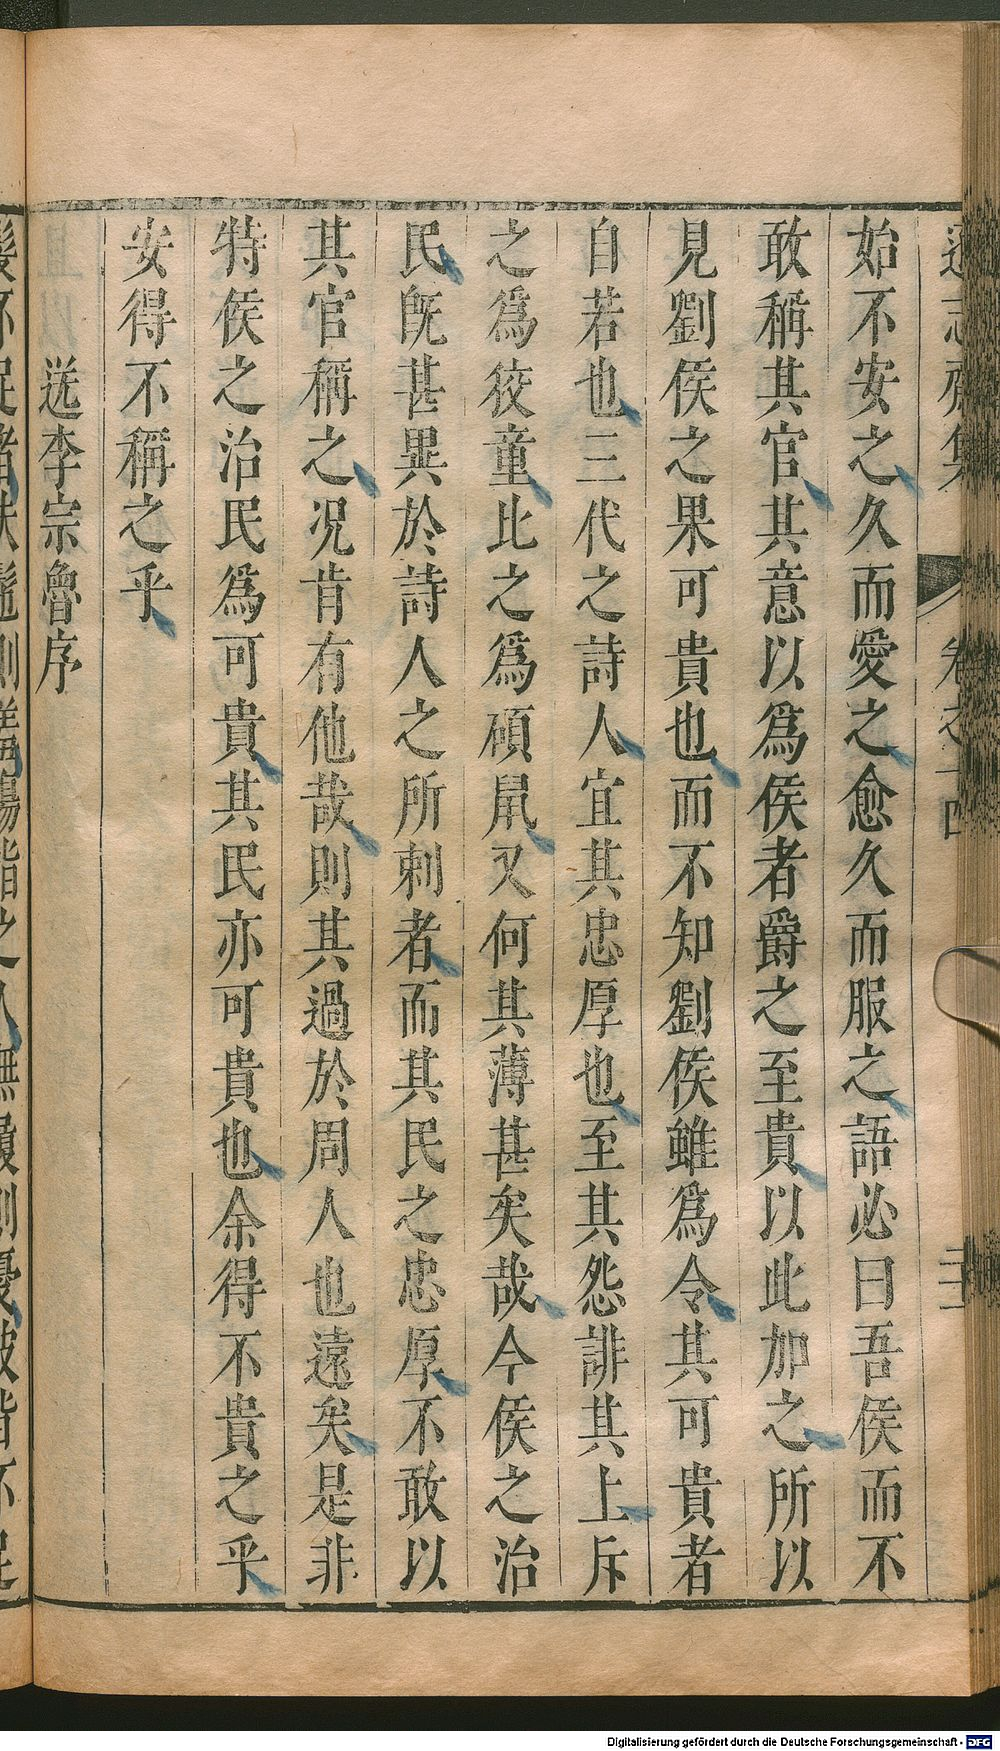 遜志齋集 卷之十四
始不安之久而愛之愈久而服之語必曰吾侯而不
敢稱其官其意以爲侯者爵之至貴以此加之所以
見劉侯之果可貴也而不知劉侯雖爲令其可貴者
自若也三代之詩人宜其忠厚也至其怨誹其上斥
之爲狡童比之爲碩鼠又何其薄甚矣哉今侯之治
民旣甚異於詩人之所刺者而其民之忠厚不敢以
其官稱之况肯有他哉則其過於周人也遠矣是非
特侯之治民爲可貴其民亦可貴也余得不貴之乎
安得不稱之乎
送李宗魯序
Digitalisierung gefördert durch die Deutsche Forschungsgemeinschaft - DFG